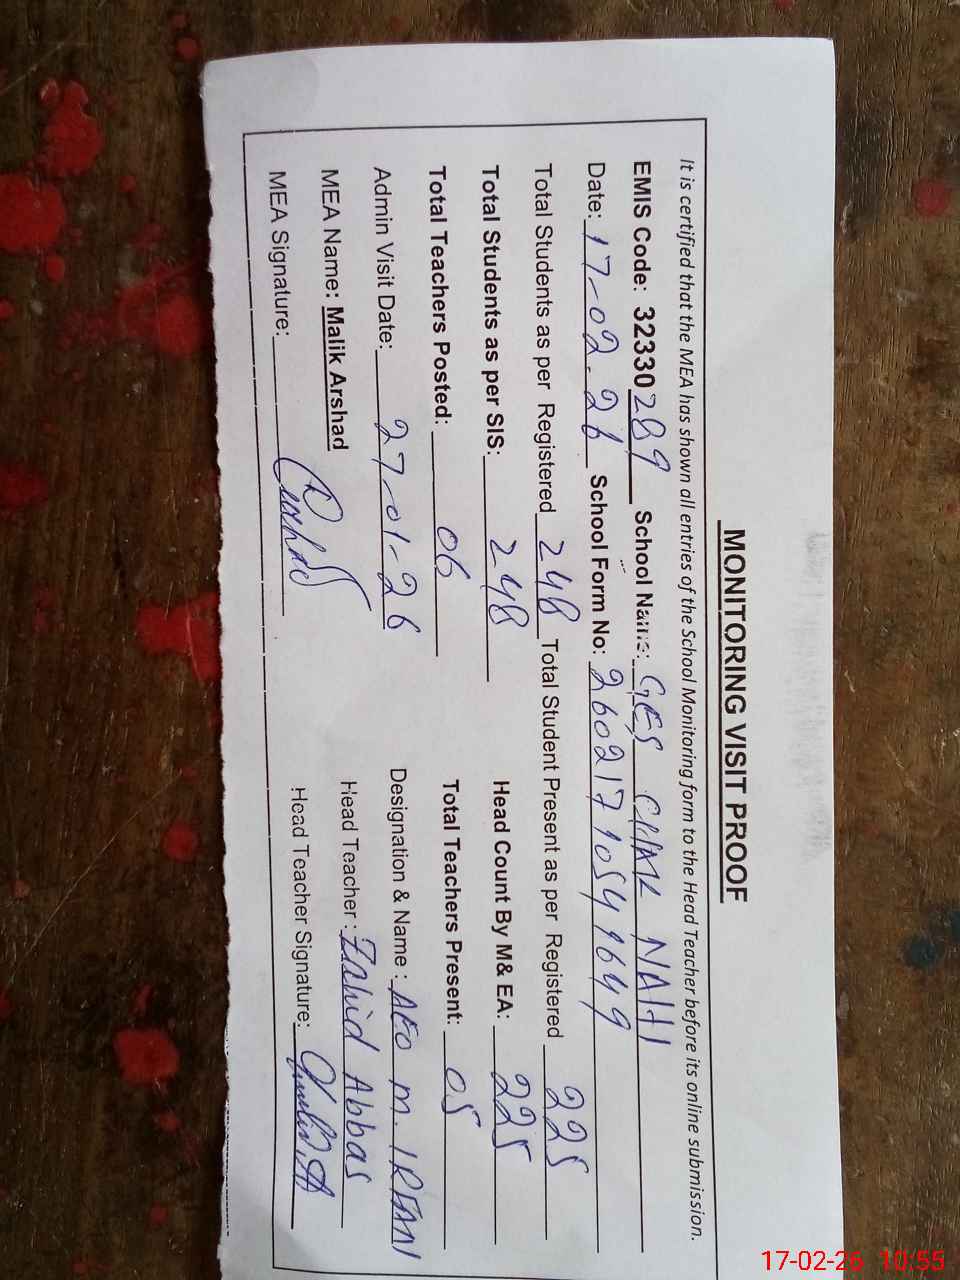 MONITORING VISIT PROOF
It is certified that the MEA has shown all entries of the School Monitoring form to the Head Teacher before its online submission.
EMIS Code: 32330289 School Name: GES CHAK NAHI
Date: 17-02-26 School Form No: 26021710549649
Total Students as per Registered 248 Total Student Present as per Registered 225
Total Students as per SIS: 248 Head Count By M& EA: 225
Total Teachers Posted: 06 Total Teachers Present: 05
Admin Visit Date: 27-01-26 Designation & Name: AEO M. IRFAN
MEA Name: Malik Arshad Head Teacher: Zahid Abbas
MEA Signature: Arshad Head Teacher Signature:
17-02-26 10:55